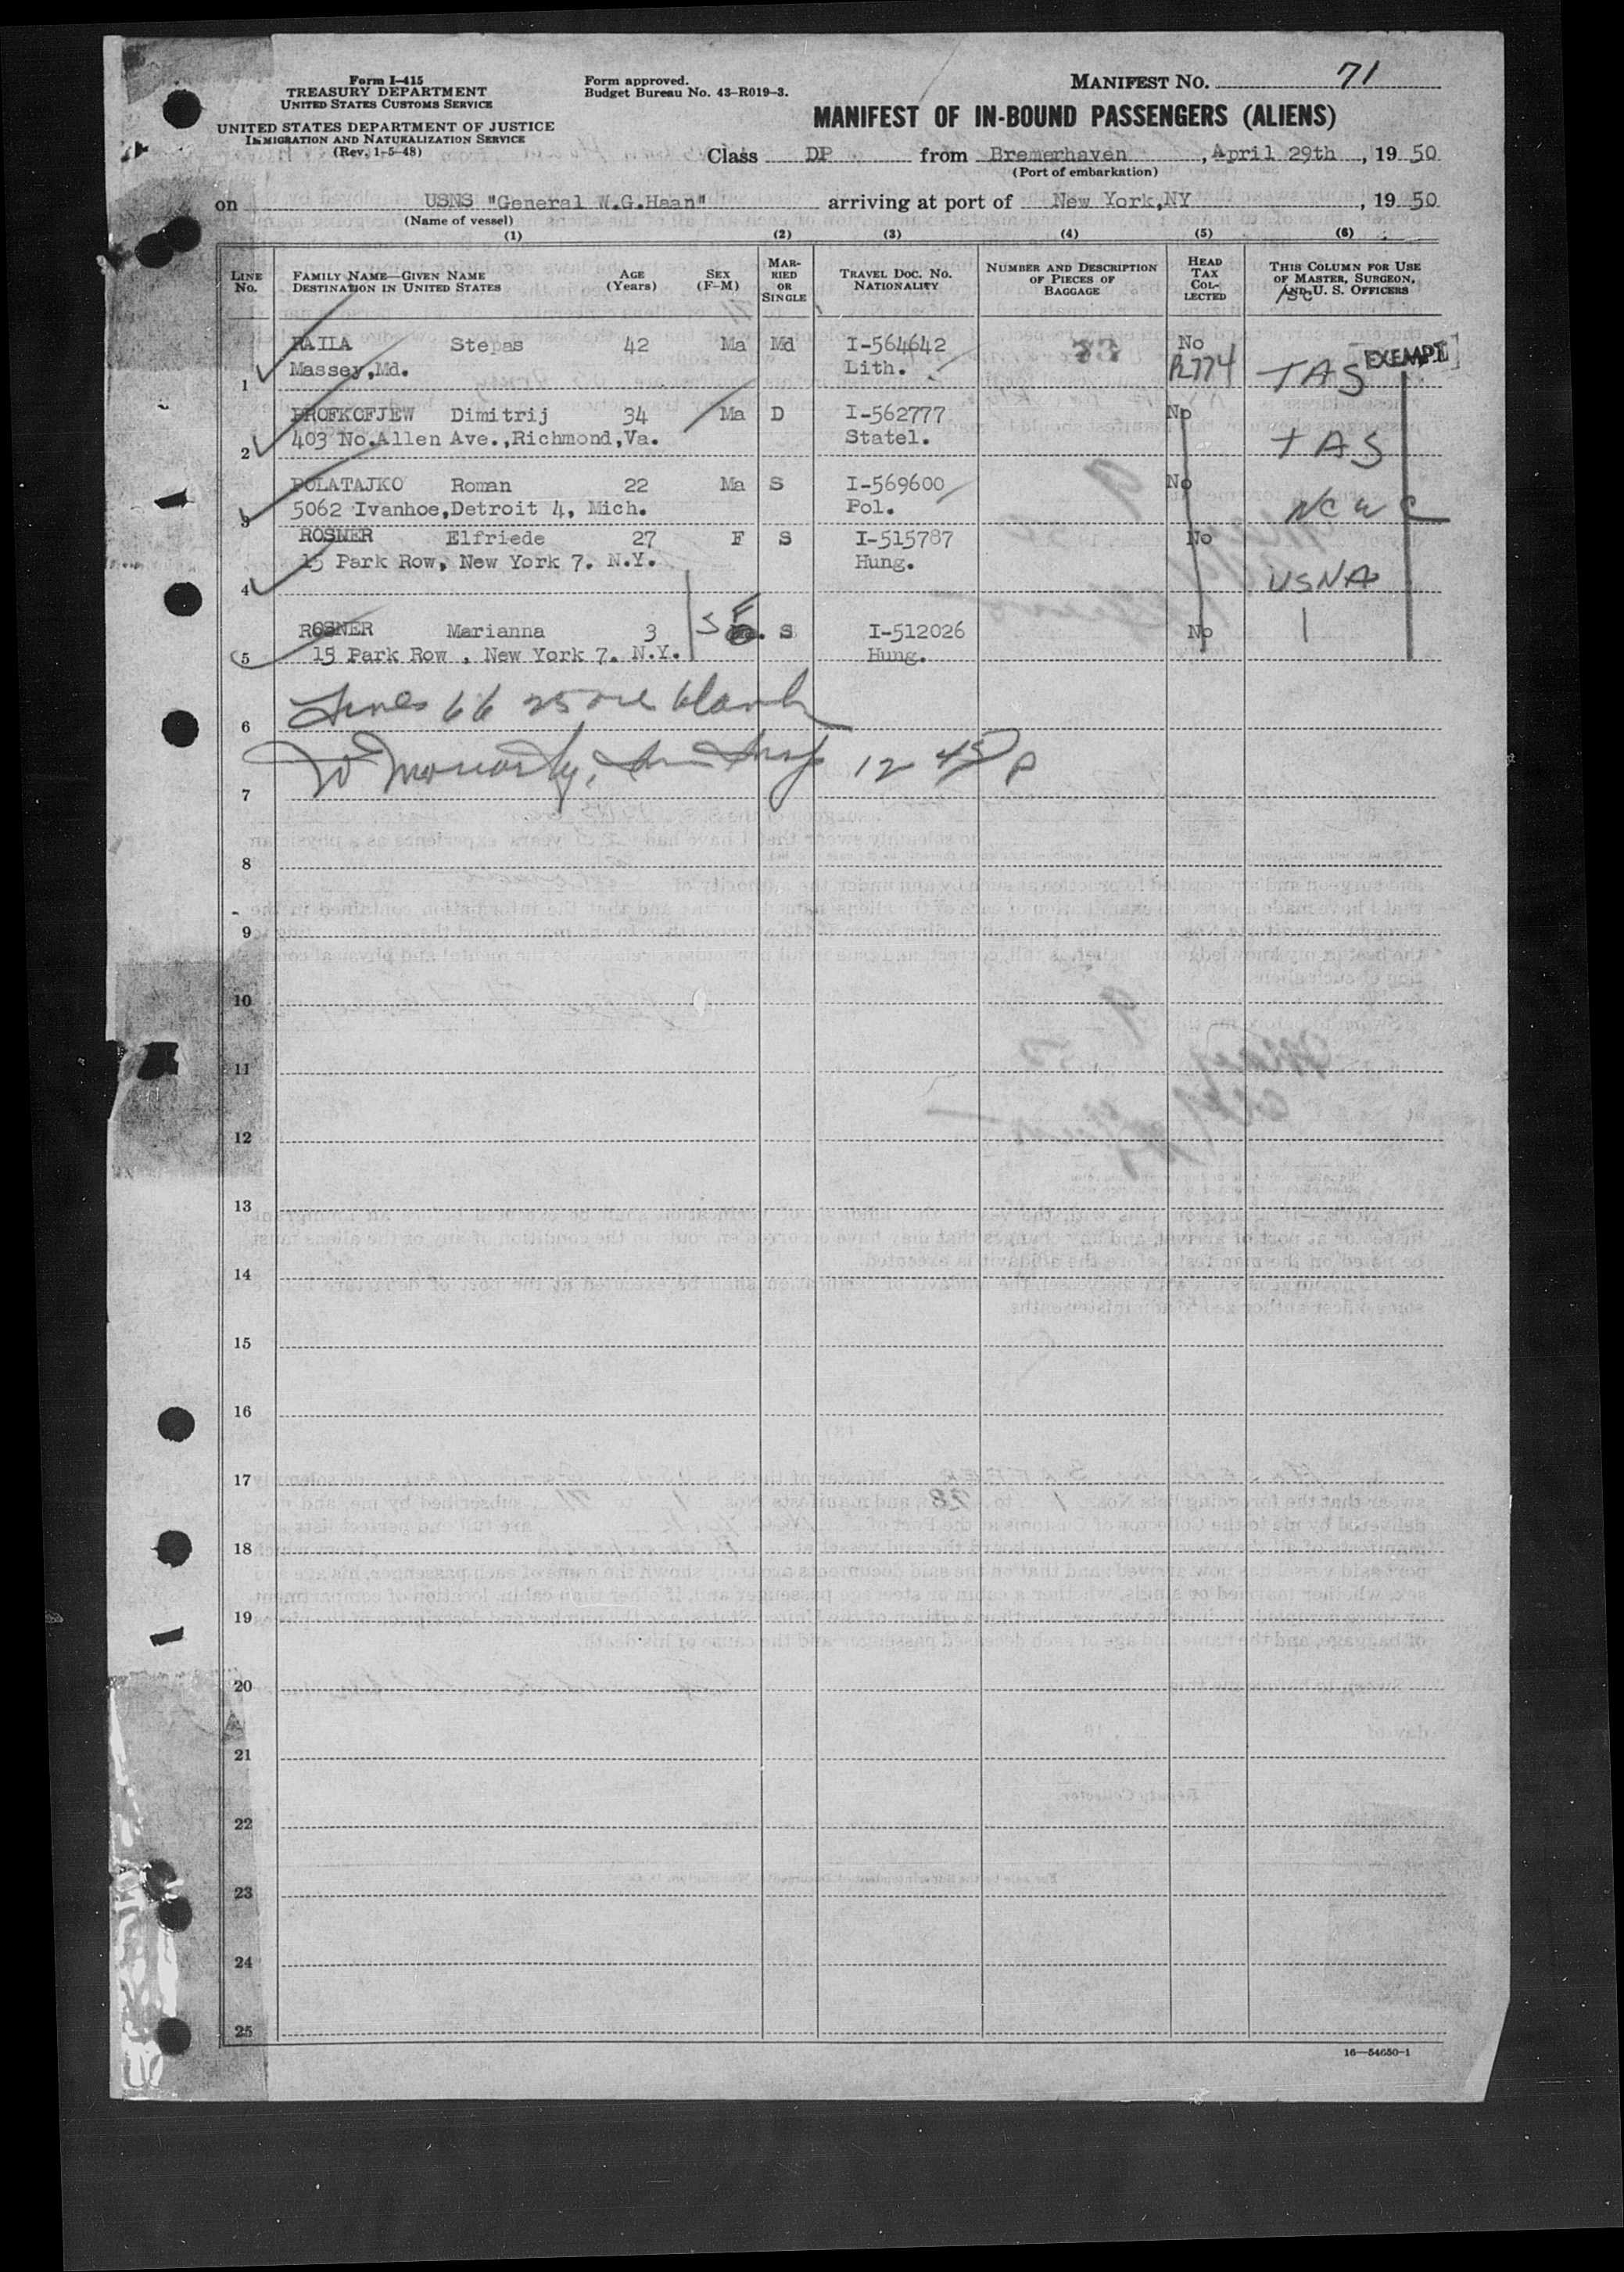 Form I-415
TREASURY DEPARTMENT
UNITED STATES CUSTOMS SERVICE
UNITED STATES DEPARTMENT OF JUSTICE
IMMIGRATION AND NATURALIZATION SERVICE
(Rev. 1-5-48)
Form approved.
Budget Bureau No. 43-R019-3.
MANIFEST NO. 71
MANIFEST OF IN-BOUND PASSENGERS (ALIENS)
Class DP from Bremerhaven, April 29th, 1950
(Port of embarkation)
on USNS "General W.G.Haan" arriving at port of New York,NY, 1950
(Name of vessel)
(1) (2) (3) (4) (5) (6)
LINE No. FAMILY NAME—GIVEN NAME DESTINATION IN UNITED STATES AGE (Years) SEX (F-M) MARRIED OR SINGLE TRAVEL DOC. NO. NATIONALITY NUMBER AND DESCRIPTION OF PIECES OF BAGGAGE HEAD TAX COLLECTED THIS COLUMN FOR USE OF MASTER, SURGEON, AND U. S. OFFICERS
RAILA Stepas 42 Ma Md I-564642 No
1 Massey,Md. Lith. R774 TAS EXEMPT
PROFKOFJEW Dimitrij 34 Ma D I-562777 No
2 403 No.Allen Ave.,Richmond,Va. Statel. TAS
POLATAJKO Roman 22 Ma S I-569600 No
3 5062 Ivanhoe,Detroit 4, Mich. Pol. NCWC
ROSNER Elfriede 27 F S I-515787 No
4 15 Park Row, New York 7. N.Y. Hung. USNA
ROSNER Marianna 3 F S I-512026 No
5 15 Park Row , New York 7. N.Y. Hung.
6 Lines 6 to 25 are blank
7 12 45 p
8
9
10
11
12
13
14
15
16
17
18
19
20
21
22
23
24
25
16—54650-1